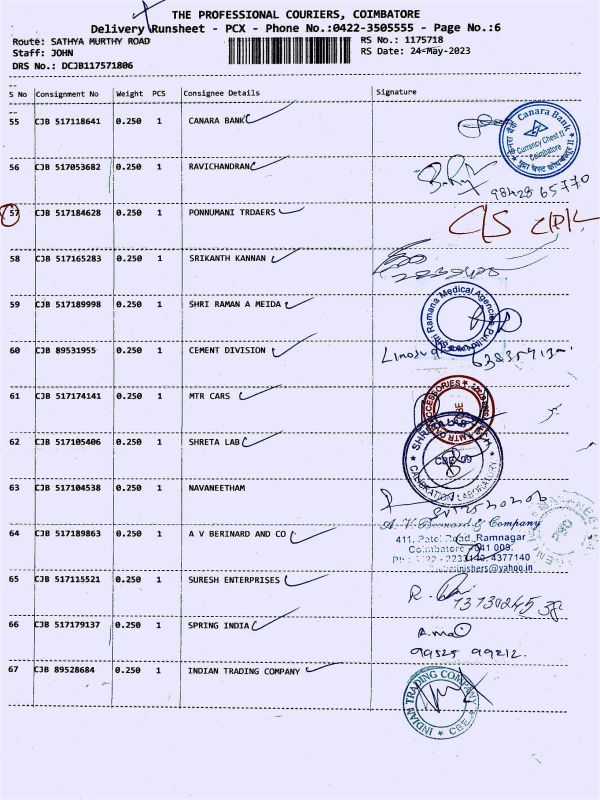 THE PROFESSIONAL COURIERS, COIMBATORE
Delivery Runsheet - PCX - Phone No.:0422-3505555 - Page No.:6
Route: SATHYA MURTHY ROAD RS No.: 1175718
Staff: JOHN RS Date: 24-May-2023
DRS No.: DCJB117571806
S No Consignment No Weight PCS Consignee Details Signature
55 CJB 517118641 0.250 1 CANARA BANK
Canara Bank
Currency Chest II
Coimbatore
56 CJB 517053682 0.250 1 RAVICHANDRAN
98428 65770
57 CJB 517184628 0.250 1 PONNUMANI TRDAERS
58 CJB 517165283 0.250 1 SRIKANTH KANNAN
59 CJB 517189998 0.250 1 SHRI RAMAN A MEIDA
Ramana Medical Agencies
60 CJB 89531955 0.250 1 CEMENT DIVISION
61 CJB 517174141 0.250 1 MTR CARS
MTR CAR ACCESSORIES
CBE
62 CJB 517105406 0.250 1 SHRETA LAB
CBE-09
CALIBRATION LABORATORY
63 CJB 517104538 0.250 1 NAVANEETHAM
64 CJB 517189863 0.250 1 A V BERINARD AND CO
A. V. Bernard & Company
411, Patel Road, Ramnagar
Coimbatore - 641 009.
4377140
@yahoo.in
65 CJB 517115521 0.250 1 SURESH ENTERPRISES
66 CJB 517179137 0.250 1 SPRING INDIA
99525 99212.
67 CJB 89528684 0.250 1 INDIAN TRADING COMPANY
INDIAN TRADING COMPANY
CBE